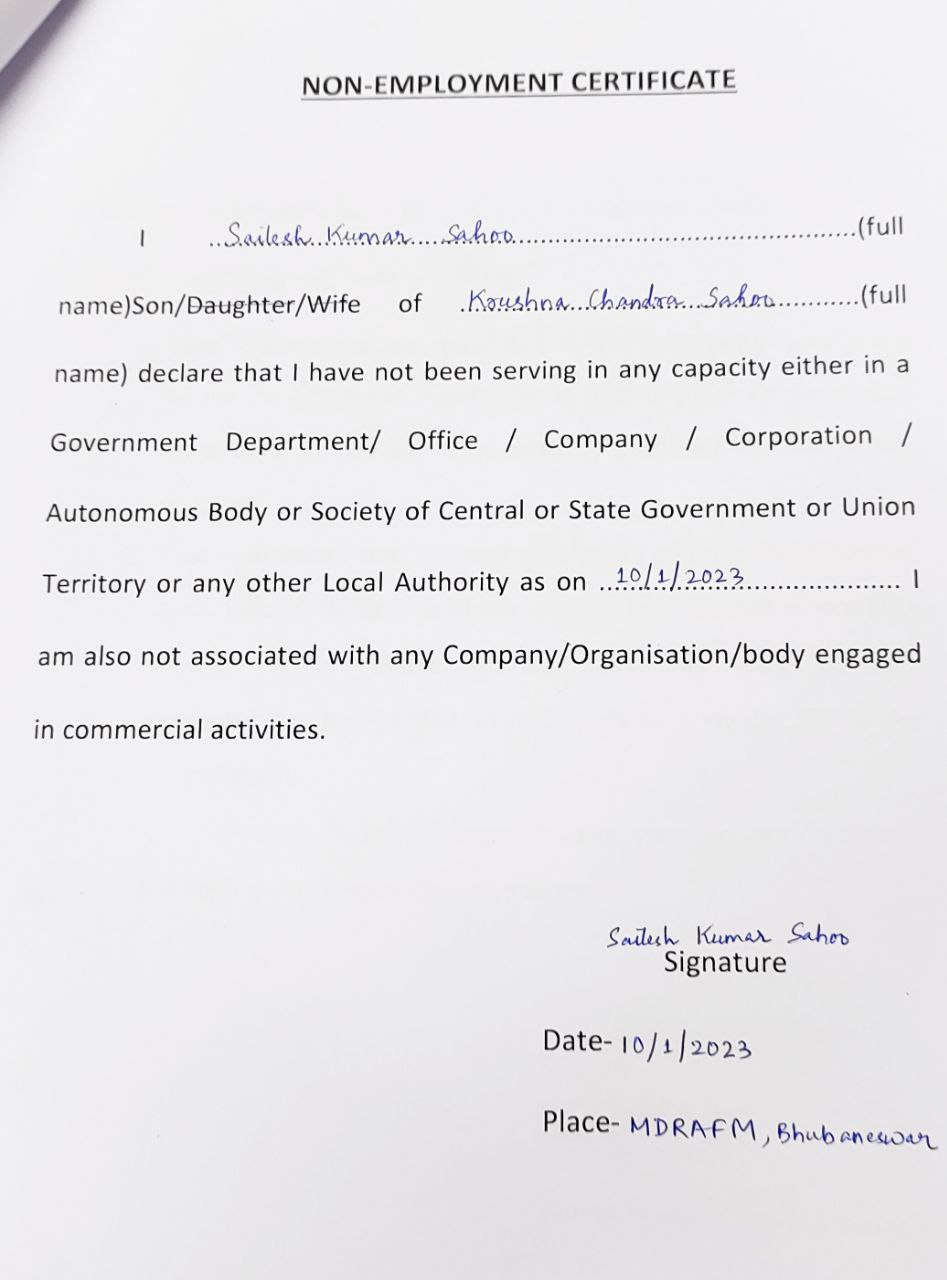 NON-EMPLOYMENT CERTIFICATE
I ..Sailesh..Kumar.....Sahoo..................................................(full
name)Son/Daughter/Wife of .Koushna...Chandra...Sahoo............(full
name) declare that I have not been serving in any capacity either in a
Government Department/ Office / Company / Corporation /
Autonomous Body or Society of Central or State Government or Union
Territory or any other Local Authority as on ...10/1/2023...................... I
am also not associated with any Company/Organisation/body engaged
in commercial activities.
Sailesh Kumar Sahoo
Signature
Date- 10/1/2023
Place- MDRAFM, Bhubaneswar